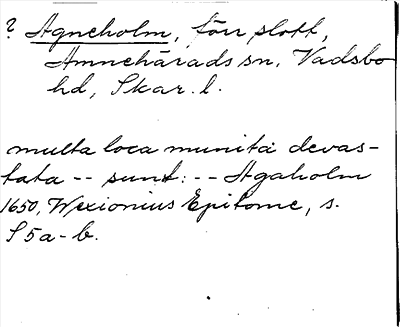 ? Agneholm, förr slott,
Amnehärads sn, Vadsbo
hd, Skar. l.
multa loca munita devas-
tata -- sunt: -- Agaholm
1650, Wexionius Epitome, s.
S 5a-b.